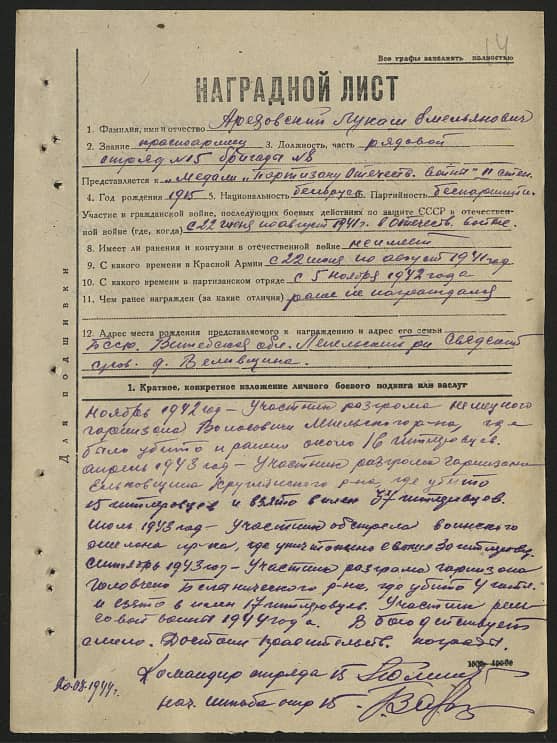 14
Все графы заполнять полностью
НАГРАДНОЙ ЛИСТ
1. Фамилия, имя и отчество Арезовский Лукаш Емельянович
2. Звание красноармеец 3. Должность, часть рядовой
отряд №15 бригада №8
Представляется к "Медали "Партизану Отечеств. войны" II степ.
4. Год рождения 1915 5. Национальность белорус 6. Партийность беспартийн.
Участие в гражданской войне, последующих боевых действиях по защите СССР и отечествен-
ной войне (где, когда) с 22 июня по август 1941 г. в Отечеств. войне.
8. Имеет ли ранения и контузии в отечественной войне не имеет
9. С какого времени в Красной Армии с 22 июня по август 1941 год
10. С какого времени в партизанском отряде с 5 ноября 1942 года
11. Чем ранее награжден (за какие отличия) ранее не награждался
12. Адрес места рождения представляемого к награждению и адрес его семьи
БССР. Витебская обл. Лепельский р-н
д. Веливщина.
Для подшивки
1. Краткое, конкретное изложение личного боевого подвига или заслуг
Ноябрь 1942 год – Участник разгрома немецкого
гарнизона р-на, где
было убито и ранено около 16 гитлеровцев.
апрель 1943 год – Участник разгрома гарнизона
Круглянского р-на, где убито
15 гитлеровцев и взято в плен гитлеровцев.
Июль 1943 год – Участник обстрела воинского
эшелона р-на, где уничтожено свыше 30 гитлеровц.
сентябрь 1943 год – Участник разгрома гарнизона
Головчено Белыничского р-на, где убито 4
и взято в плен 17 гитлеровцев. Участник рель-
совой войны 1944 года. В бою действует
смело. Достоин правительств. награды.
Командир отряда 15
20.08.1944 г. нач. штаба отр 15